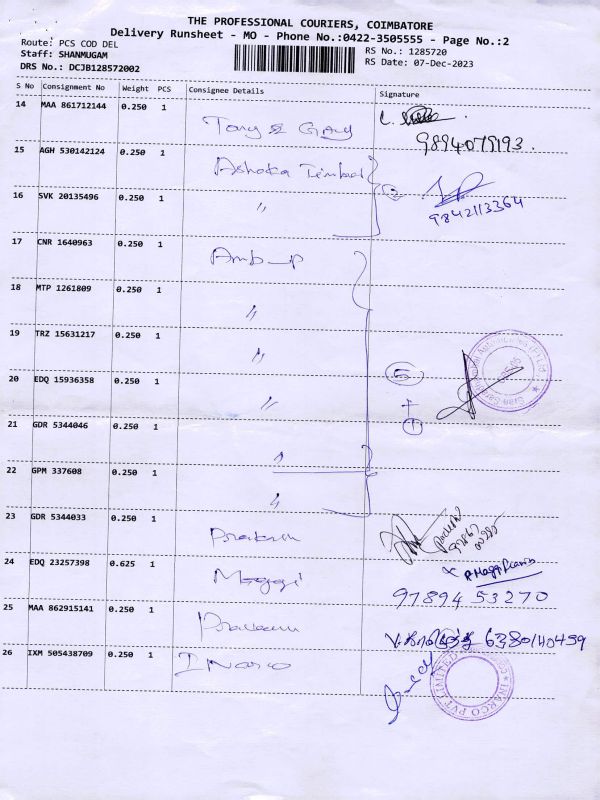 THE PROFESSIONAL COURIERS, COIMBATORE
Delivery Runsheet - MO - Phone No.:0422-3505555 - Page No.:2
Route: PCS COD DEL
Staff: SHANMUGAM
DRS No.: DCJB128572002
RS No.: 1285720
RS Date: 07-Dec-2023
S No Consignment No Weight PCS Consignee Details Signature
14 MAA 861712144 0.250 1
9894079193.
15 AGH 530142124 0.250 1 Ashoka Timber
16 SVK 20135496 0.250 1 〃
9842113364
17 CNR 1640963 0.250 1 Amb-p
18 MTP 1261809 0.250 1 〃
19 TRZ 15631217 0.250 1 〃
20 EDQ 15936358 0.250 1 〃 5
+
1
21 GDR 5344046 0.250 1 〃
22 GPM 337608 0.250 1 〃
23 GDR 5344033 0.250 1
24 EDQ 23257398 0.625 1 Maggi
97894 53270
25 MAA 862915141 0.250 1
6380140459
26 IXM 505438709 0.250 1 INARCO
INARCO PVT LIMITED